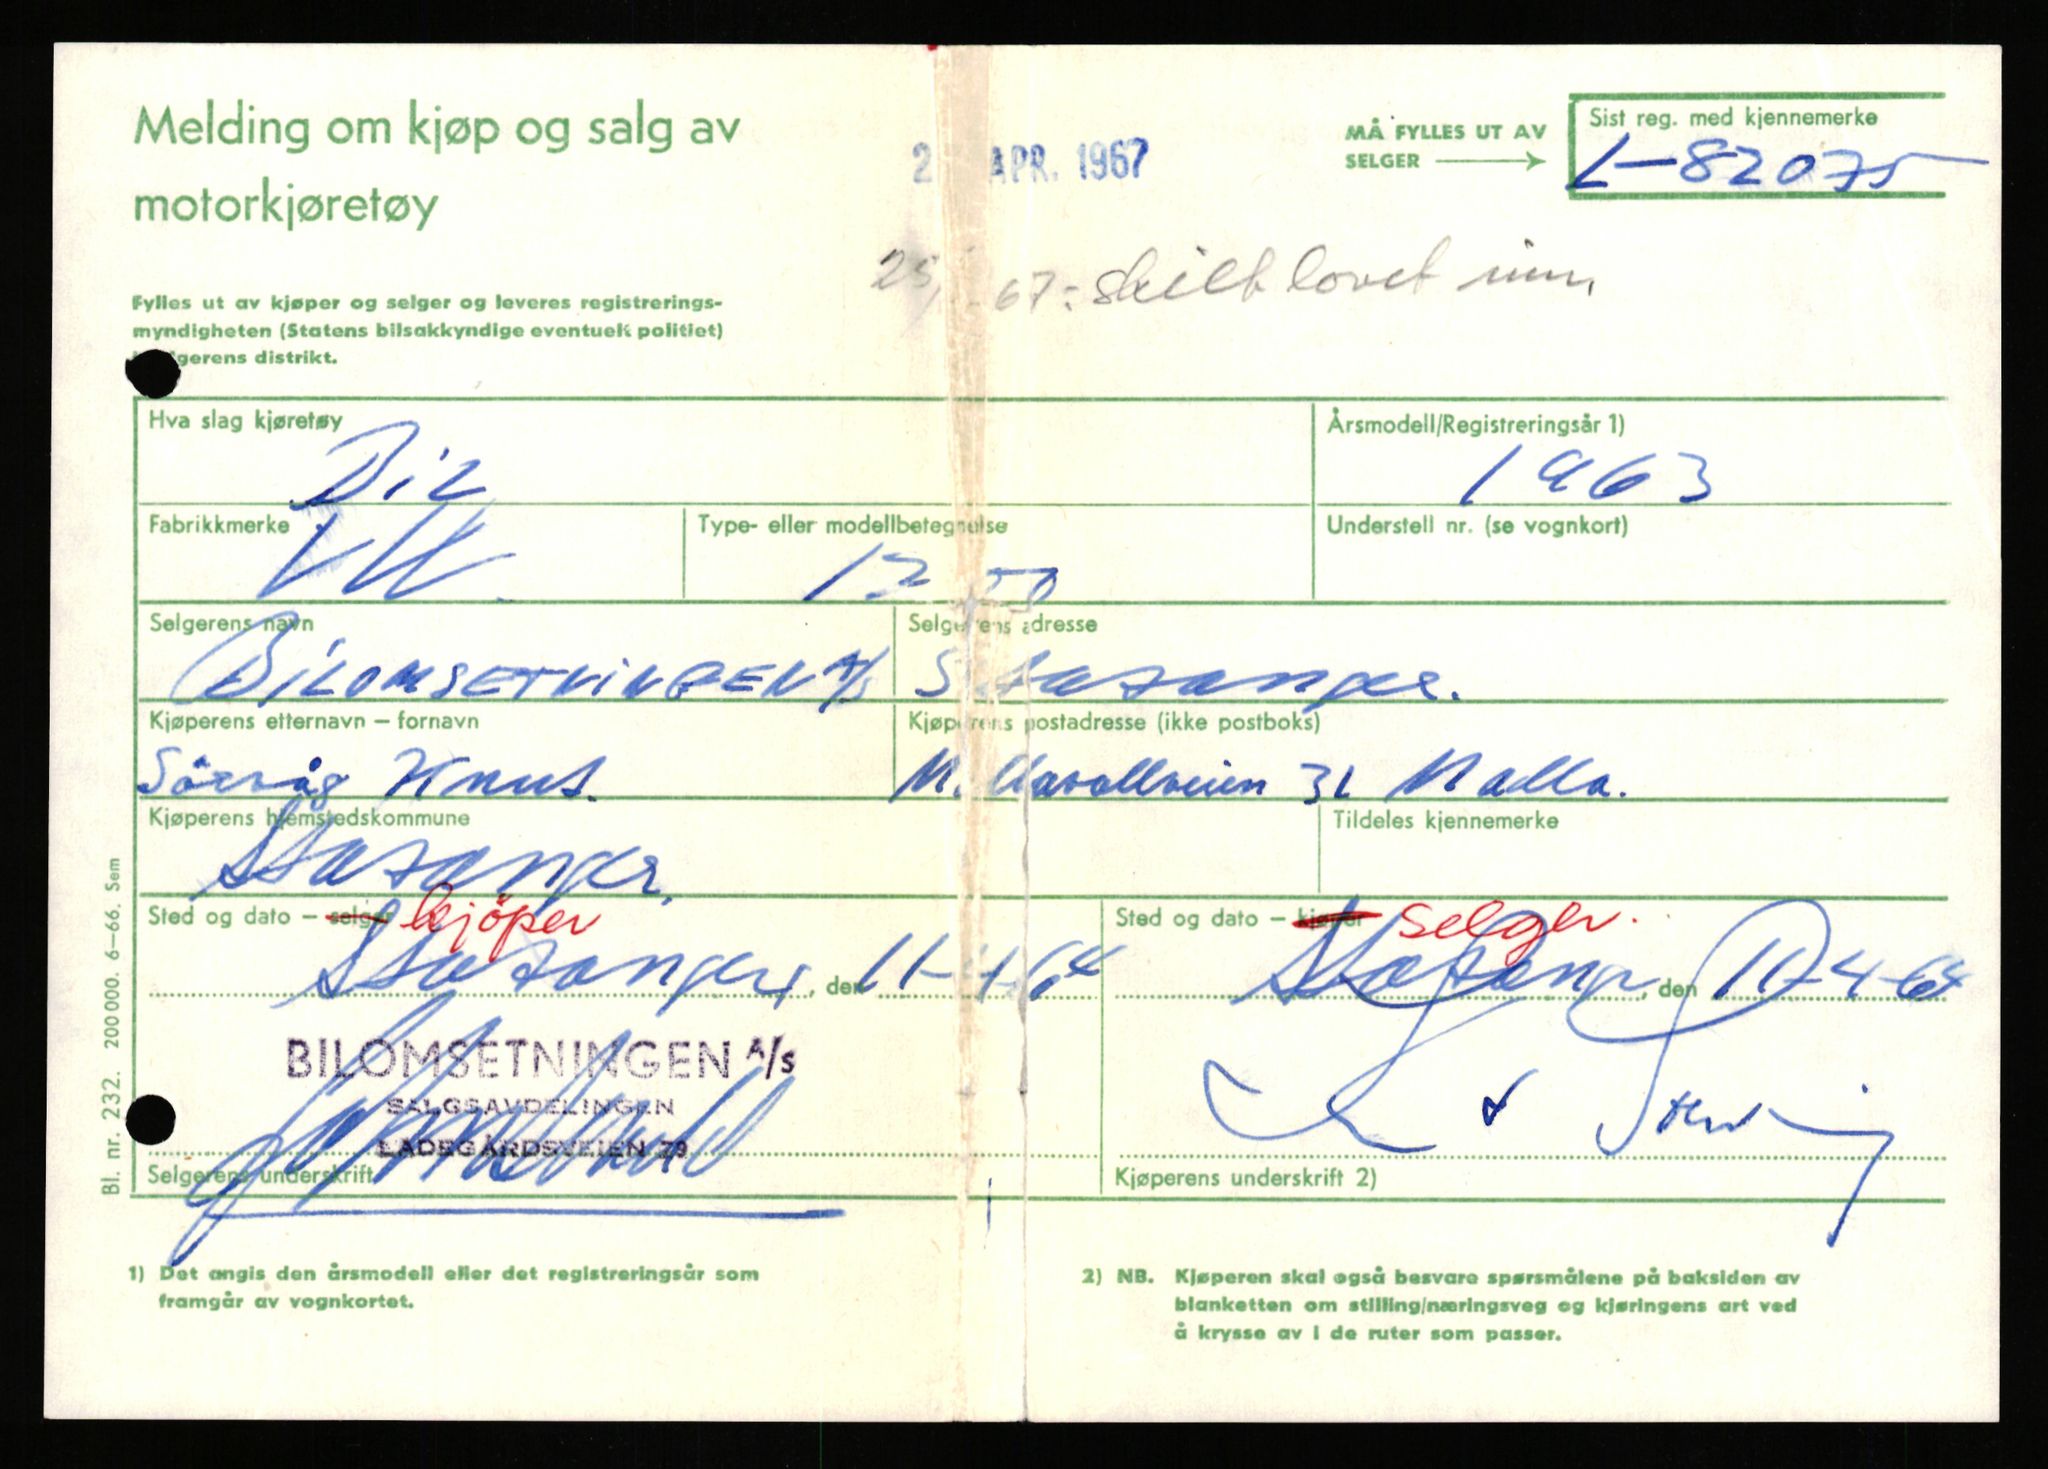 Melding om kjøp og salg av
motorkjøretøy
APR. 1967
MÅ FYLLES UT AV
SELGER
Sist reg. med kjennemerke
L-82075
67: skilt lovet inn
Fylles ut av kjøper og selger og leveres registrerings-
myndigheten (Statens bilsakkyndige eventuelt politiet)
gerens distrikt.
Hva slag kjøretøy
Bil
Årsmodell/Registreringsår 1)
1963
Fabrikkmerke
VW
Type- eller modellbetegnelse
Understell nr. (se vognkort)
Selgerens navn
BILOMSETNINGEN A/S
Selgerens adresse
Stavanger.
Kjøperens etternavn – fornavn
Sörvåg Knut.
Kjøperens postadresse (ikke postboks)
31 Madla.
Kjøperens hjemstedskommune
Stavanger.
Tildeles kjennemerke
Sted og dato – selger kjöper
Stavanger, den 11-4-64
Sted og dato – kjøper selger.
Stavanger, den 11-4-64
BILOMSETNINGEN A/S
SALGSAVDELINGEN
LADEGÅRDSVEIEN 79
Selgerens underskrift
Kjøperens underskrift 2)
1) Det angis den årsmodell eller det registreringsår som
framgår av vognkortet.
2) NB. Kjøperen skal også besvare spørsmålene på baksiden av
blanketten om stilling/næringsveg og kjøringens art ved
å krysse av i de ruter som passer.
Bl. nr. 232. 200 000. 6–66. Sem